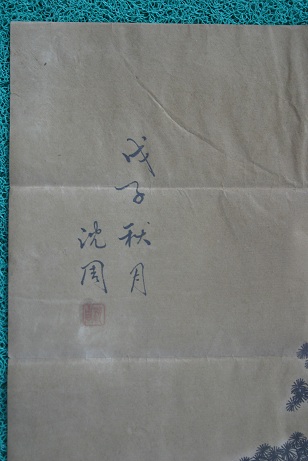 戊子秋月
沈周